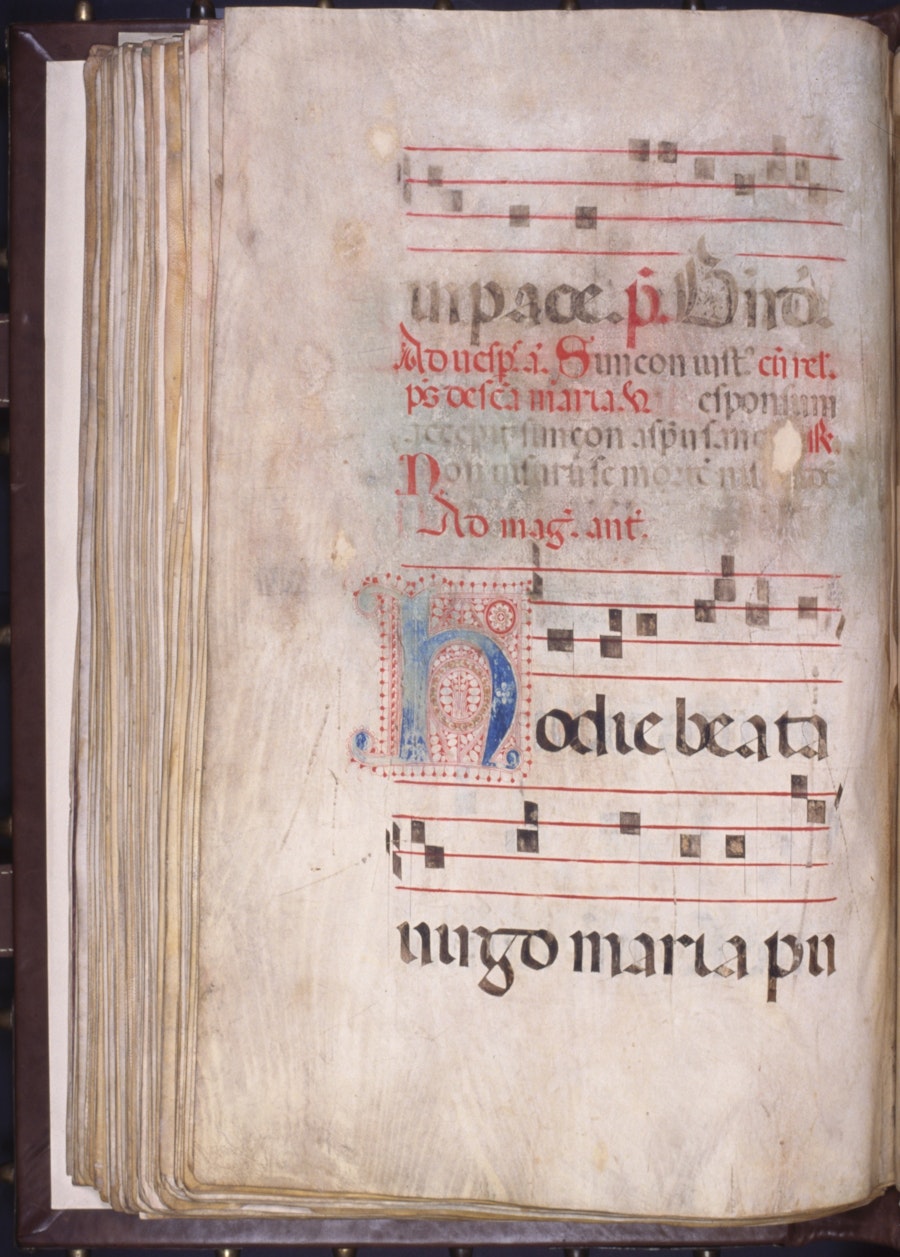 in pace. p̄. Bn̄d̄.
Ad uesp̄. ā. Simeon iust᷒ cū rel.
p̄s de sc̄a maria. V̄ Responsum
accepit simeon a sp̄u sancto R̄.
Non uisurū se mortē nisi
Ad maḡ. ant̄.
hodie beata
uirgo maria pu